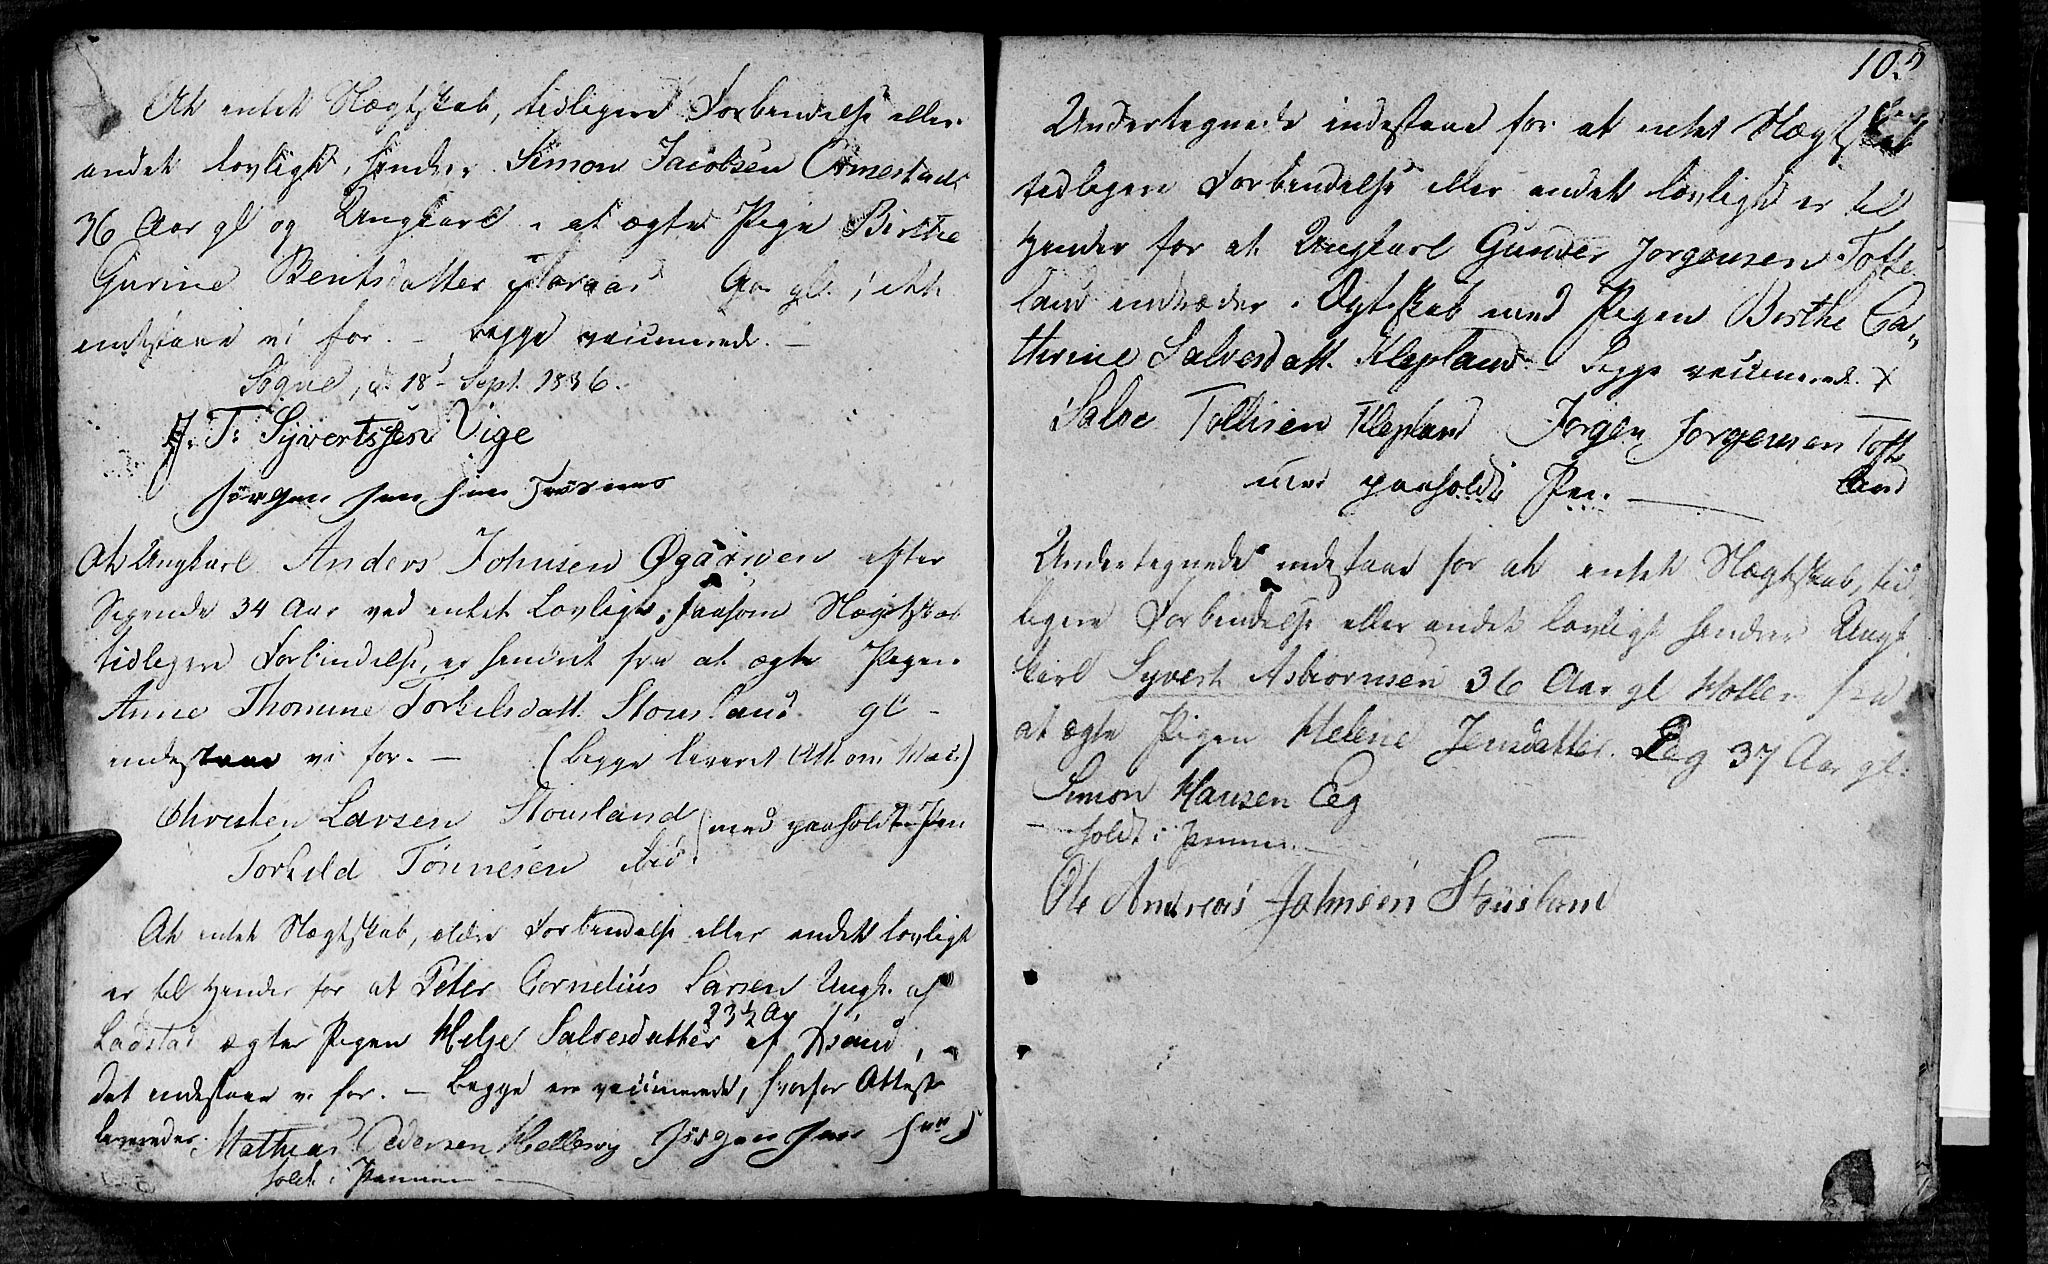 At intet Slægtskab, tidligere Forbindelse eller
andet lovligt hindrer Simon Jacobsen Ormestad
36 Aar gl og Ungkarl i at ægte Pige Birthe
Gurine Bentsdatter Aar gl
indestaae vi for. – begge vaccinerede. –
Søgne, d: 18 Sept. 1836.
J. T. Syvertssen Vige
Jørgen
At Ungkarl Anders Johnsen Øgaarden efter
Sigende 34 Aar ved intet Lovligt, saasom Slægtskab
tidligere Forbindelse, er hindret fra at ægte Pigen
Anne Thomine Torkelsdatt. Stousland gl –
indestaae vi for. – (begge leveret Att om Vac.)
Christen Larsen Stousland
Torkild Tønnesen ibid. med paaholdt Pen
At intet Slægtskab, ældre Forbindelse eller andet lovligt
er til Hinder for at Peter Cornelius Larsen Ungk. af
23½ Aar
ægter Pigen Helje Salvesdatter af
det indestaae vi for. – Begge ere vaccinerede, hvorfor Attest
leveredes. Mathias Pedersen Hellevig Jørgen
holdt i Pennen
Undertegnede indestaae for at intet Slægtskab
tidligere Forbindelse eller andet lovligt er til
Hinder for at Ungkarl Gunder Jørgensen Tofte
land indtræder i Ægteskab med Pigen Birthe Ca„
thrine Salvesdatt. Klepland – begge vaccinerede. X
Salve Tollisen Klepland Jørgen Jørgensen Tofte
med paaholdt Pen. – land
Undertegnede indestaae for at intet Slægtskab, tid
ligere Forbindelse eller andet lovligt hindrer Ungk
karl Syvert Asbiornsen 36 Aar gl Holler fra
at ægte Pigen Helene Jensdatter Eeg 37 Aar gl.
Simon Hansen Eeg
holdt i Pennen.
Ole Andreas Johnsen Stousland